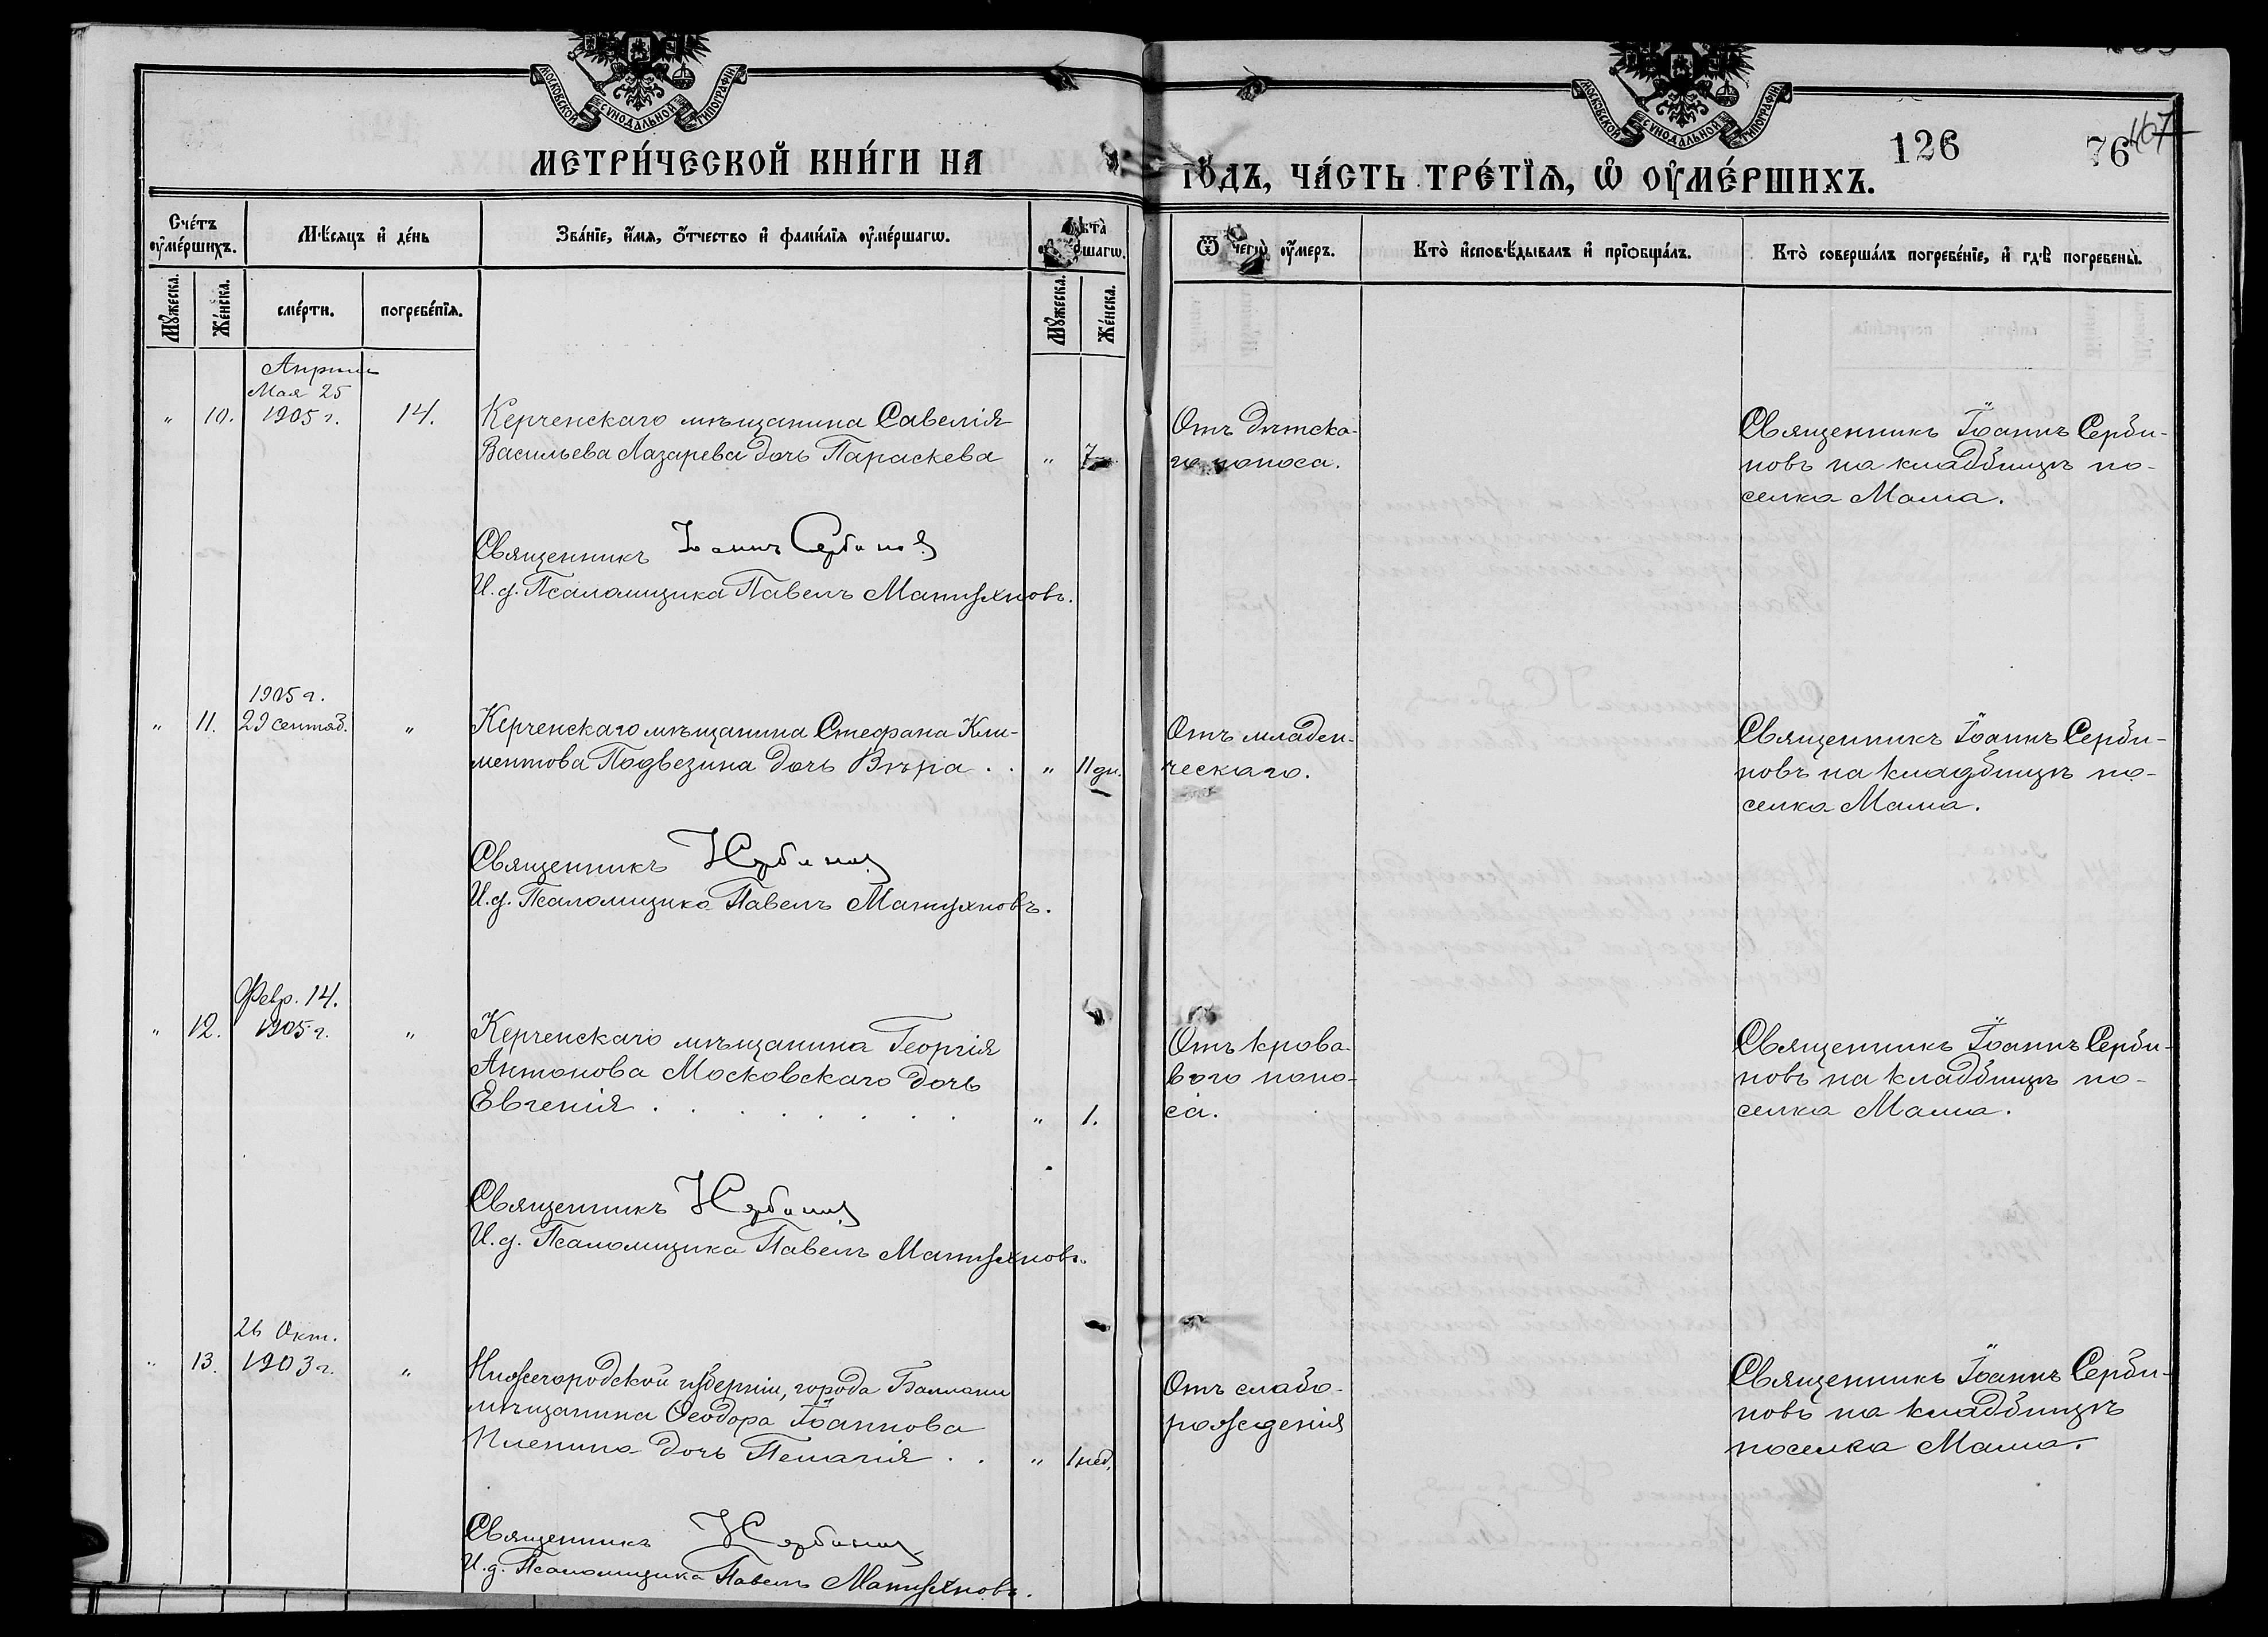 МОСКОВСКОЙ СѴНОДАЛЬНОЙ ТИПОГРАФІИ
МОСКОВСКОЙ СѴНОДАЛЬНОЙ ТИПОГРАФІИ
126 76 167
МЕТРИ́ЧЕСКОЙ КНИ́ГИ НА ГО́ДЪ, ЧА́СТЬ ТРЕ́ТЇѦ, Ѡ҆ ОУ҆МЕ́РШИХЪ.
Сче́тъ оу҆ме́ршихъ.
Мѣ́сяцъ и҆ де́нь
Зва́нїе, и҆́мя, ѻ҆́тчество и҆ фами́лїя оу҆ме́ршагѡ.
Ѿ чегѡ̀ оу҆́меръ.
Кто̀ и҆сповѣ́дывалъ и҆ прїѡбща́лъ.
Кто̀ соверша́лъ погребе́нїе, и҆ гдѣ̀ погребены̀.
Мꙋ́жеска.
Же́нска.
сме́рти.
погребе́нїя.
Мꙋ́жеска.
Же́нска.
Апрѣля
Мая 25
" 10. 1905 г. 14. Керченскаго мѣщанина Савелія
Васильева Лазарева дочь Параскева " 7
Отъ дѣтска-
го поноса.
Священникъ Іоаннъ Серби-
новъ на кладбищѣ по-
селка Мама.
Священникъ Іоаннъ Сербиновъ
И. д. Псаломщика Павелъ Матухновъ.
1905 г.
" 11. 29 сентяб. " Керченскаго мѣщанина Стефана Кли-
ментова Подвезина дочь Вѣра . . " 11 дн.
Отъ младен-
ческаго.
Священникъ Іоаннъ Серби-
новъ на кладбищѣ по-
селка Мама.
Священникъ І Сербиновъ
И. д. Псаломщика Павелъ Матухновъ.
Февр. 14.
" 12. 1905 г. " Керченскаго мѣщанина Георгія
Антонова Московскаго дочь
Евгенія . . . . . . . . " 1.
Отъ крова-
вого поно-
са.
Священникъ Іоаннъ Серби-
новъ на кладбищѣ по-
селка Мама.
Священникъ І Сербиновъ
И. д. Псаломщика Павелъ Матухновъ.
26 Окт.
" 13. 1903 г. " Нижегородской губерніи, города Балахны
мѣщанина Ѳеодора Іоаннова
дочь Пелагія . . " 1 нед.
Отъ слабо-
рожденія
Священникъ Іоаннъ Серби-
новъ на кладбищѣ
поселка Мама.
Священникъ І Сербиновъ
И. д. Псаломщика Павелъ Матухновъ.